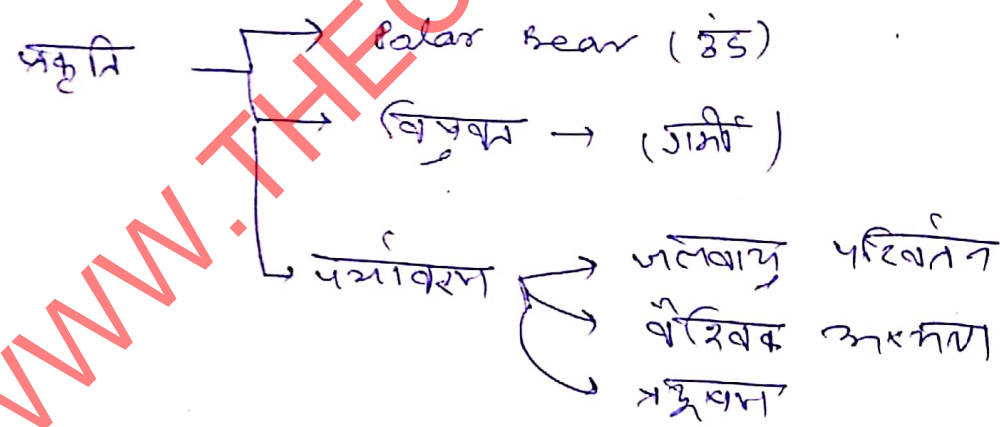 प्रकृति → Polar Bear (ठंड)
→ विषुवत → (गर्मी)
→ पर्यावरण → जलवायु परिवर्तन
→ वैश्विक
→ प्रदूषण
WWW.THEC